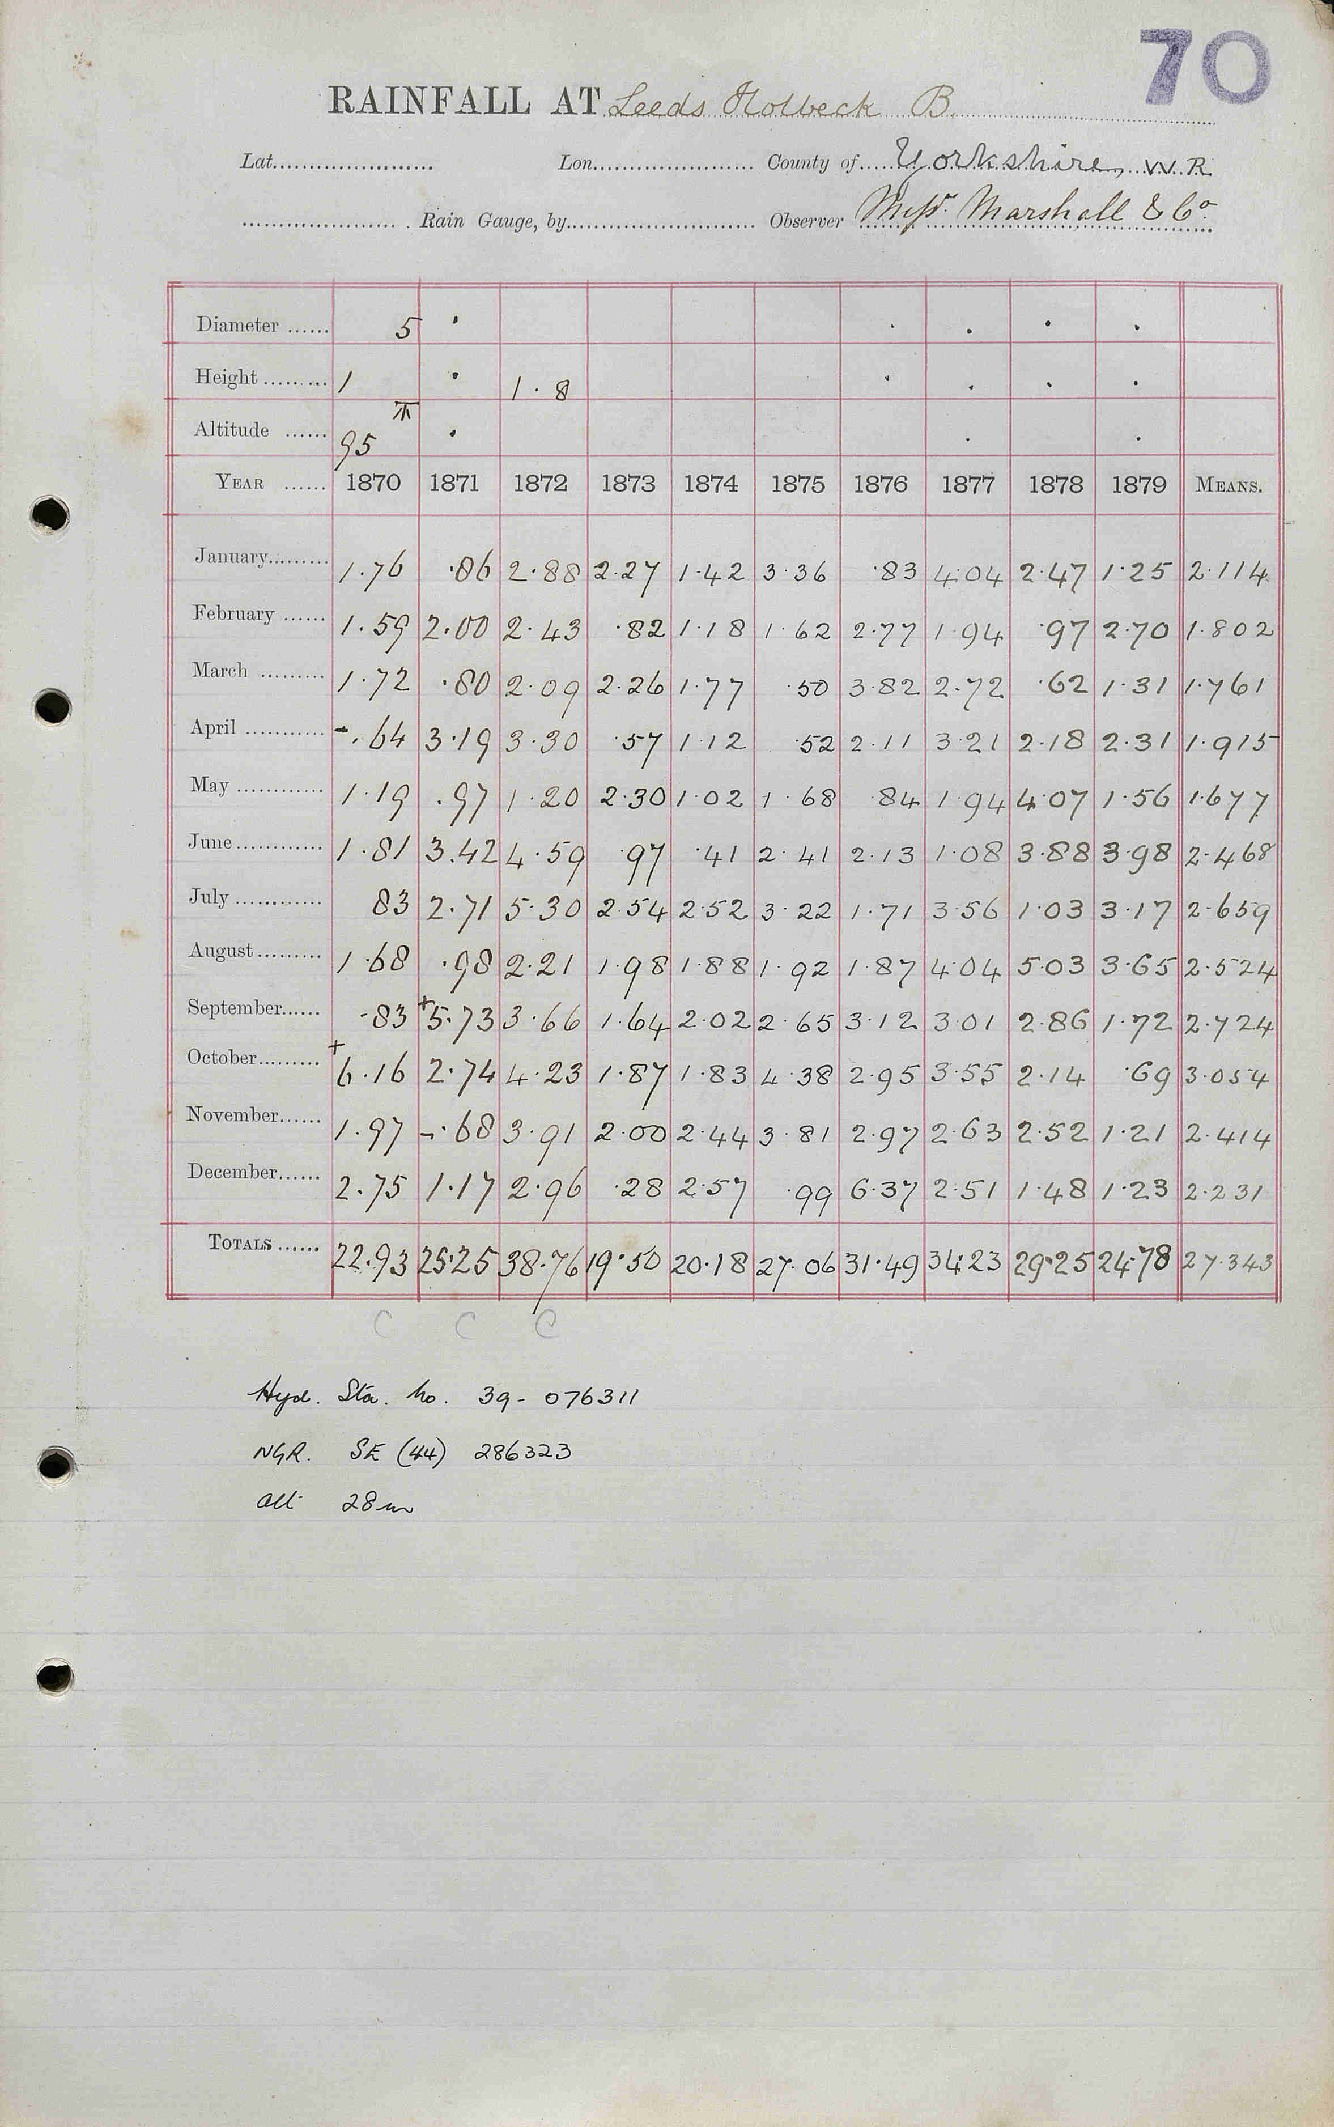 70
RAINFALL AT Leeds Holbeck B.
Lat...................... Lon...................... County of..... Yorkshire, W.R.
...................... Rain Gauge, by.......................... Observer Messrs. Marshall & Co.
Diameter ...... 5 · · · · ·
Height ......... 1 · 1.8 · · · ·
Altitude ...... 95 · · ·
YEAR ...... 1870 1871 1872 1873 1874 1875 1876 1877 1878 1879 MEANS.
January......... 1.76 .86 2.88 2.27 1.42 3.36 .83 4.04 2.47 1.25 2.114
February ...... 1.59 2.00 2.43 .82 1.18 1.62 2.77 1.94 .97 2.70 1.802
March ......... 1.72 .80 2.09 2.26 1.77 .50 3.82 2.72 .62 1.31 1.761
April ........... -.64 3.19 3.30 .57 1.12 .52 2.11 3.21 2.18 2.31 1.915
May ............ 1.19 .97 1.20 2.30 1.02 1.68 .84 1.94 4.07 1.56 1.677
June ............ 1.81 3.42 4.59 .97 .41 2.41 2.13 1.08 3.88 3.98 2.468
July ............ 83 2.71 5.30 2.54 2.52 3.22 1.71 3.56 1.03 3.17 2.659
August ......... 1.68 .98 2.21 1.98 1.88 1.92 1.87 4.04 5.03 3.65 2.524
September...... .83 +5.73 3.66 1.64 2.02 2.65 3.12 3.01 2.86 1.72 2.724
October......... +6.16 2.74 4.23 1.87 1.83 4.38 2.95 3.55 2.14 .69 3.054
November...... 1.97 -.68 3.91 2.00 2.44 3.81 2.97 2.63 2.52 1.21 2.414
December...... 2.75 1.17 2.96 .28 2.57 .99 6.37 2.51 1.48 1.23 2.231
TOTALS ...... 22.93 25.25 38.76 19.50 20.18 27.06 31.49 34.23 29.25 24.78 27.343
C C C
Hyd. Sta. No. 39-076311
NGR. SE (44) 286323
alt 28m